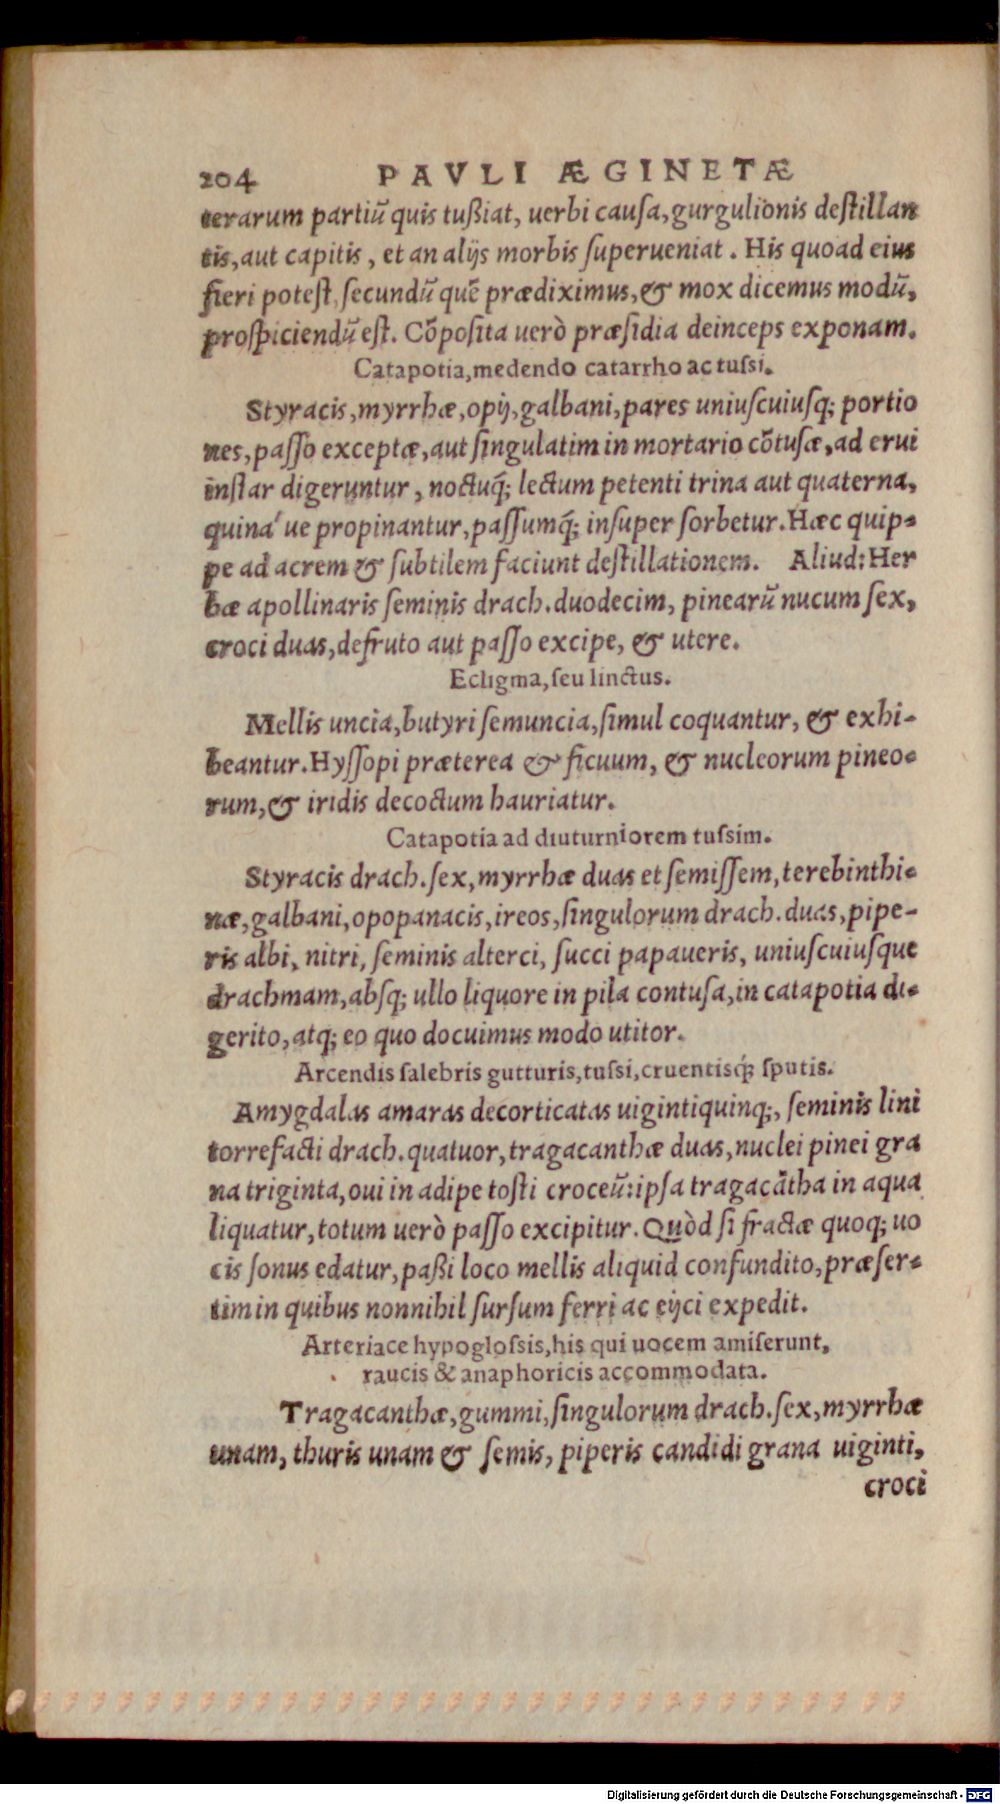 204 PAVLI ÆGINETÆ
terarum partiũ quis tußiat, uerbi causa, gurgulionis destillan
tis, aut capitis, et an alijs morbis superueniat. His quoad eius
fieri potest, secundũ quẽ prædiximus, & mox dicemus modũ,
prospiciendũ est. Cõposita uerò præsidia deinceps exponam.
Catapotia, medendo catarrho ac tussi.
Styracis, myrrhæ, opij, galbani, pares uniuscuiusq; portio
nes, passo exceptæ, aut singulatim in mortario cõtusæ, ad erui
instar digeruntur, noctuq́; lectum petenti trina aut quaterna,
quina´ue propinantur, passumq́; insuper sorbetur. Hæc quip-
pe ad acrem & subtilem faciunt destillationem. Aliud: Her
bæ apollinaris seminis drach. duodecim, pinearũ nucum sex,
croci duas, defruto aut passo excipe, & utere.
Ecligma, seu linctus.
Mellis uncia, butyri semuncia, simul coquantur, & exhi-
beantur. Hyssopi præterea & ficuum, & nucleorum pineo-
rum, & iridis decoctum hauriatur.
Catapotia ad diuturniorem tussim.
Styracis drach. sex, myrrhæ duas et semissem, terebinthi-
næ, galbani, opopanacis, ireos, singulorum drach. duas, pipe-
ris albi, nitri, seminis alterci, succi papaueris, uniuscuiusque
drachmam, absq; ullo liquore in pila contusa, in catapotia di-
gerito, atq; eo quo docuimus modo utitor.
Arcendis salebris gutturis, tussi, cruentisq́; sputis.
Amygdalas amaras decorticatas uigintiquinq;, seminis lini
torrefacti drach. quatuor, tragacanthæ duas, nuclei pinei gra
na triginta, oui in adipe tosti croceũ: ipsa tragacãtha in aqua
liquatur, totum uerò passo excipitur. Quòd si fractæ quoq; uo
cis sonus edatur, paßi loco mellis aliquid confundito, præser-
tim in quibus nonnihil sursum ferri ac eijci expedit.
Arteriace hypoglossis, his qui uocem amiserunt,
raucis & anaphoricis accommodata.
Tragacanthæ, gummi, singulorum drach. sex, myrrhæ
unam, thuris unam & semis, piperis candidi grana uiginti,
croci
Digitalisierung gefördert durch die Deutsche Forschungsgemeinschaft - DFG